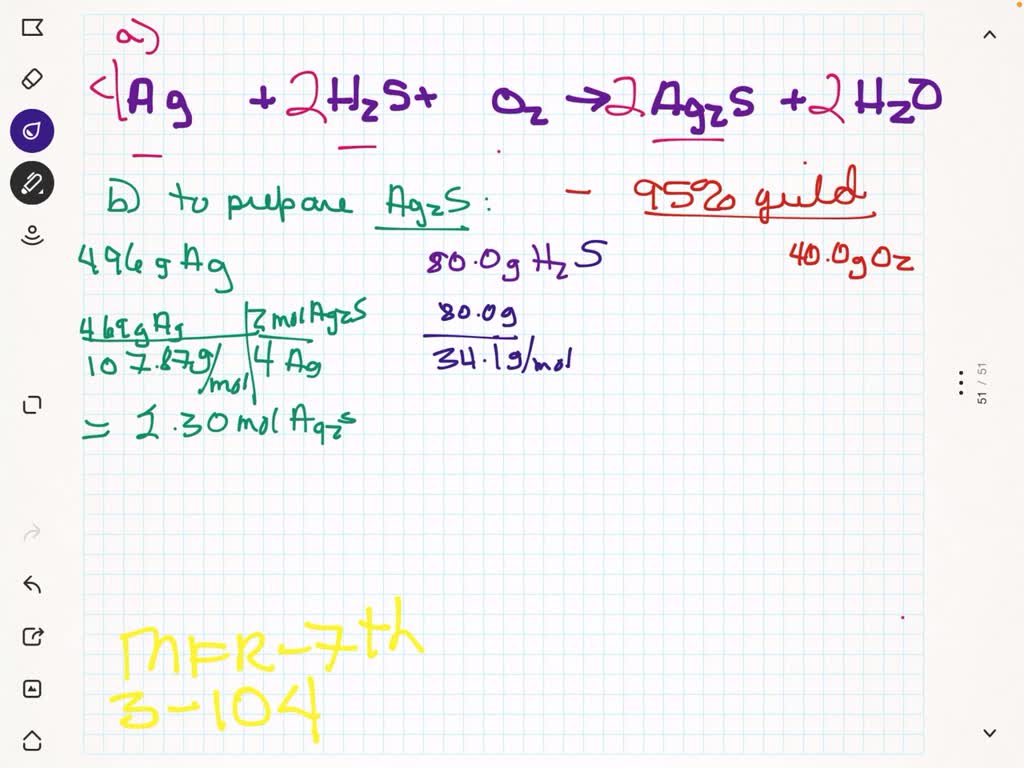 a)
4Ag + 2H₂S + O₂ → 2Ag₂S + 2H₂O
b) to prepare Ag₂S: - 95% yield
496g Ag 80.0g H₂S 40.0g O₂
469g Ag 2 mol Ag₂S 80.0g
107.87g/mol 4 Ag 34.1g/mol
= 2.30 mol Ag₂S
MFR-7th
3-104
51 / 51